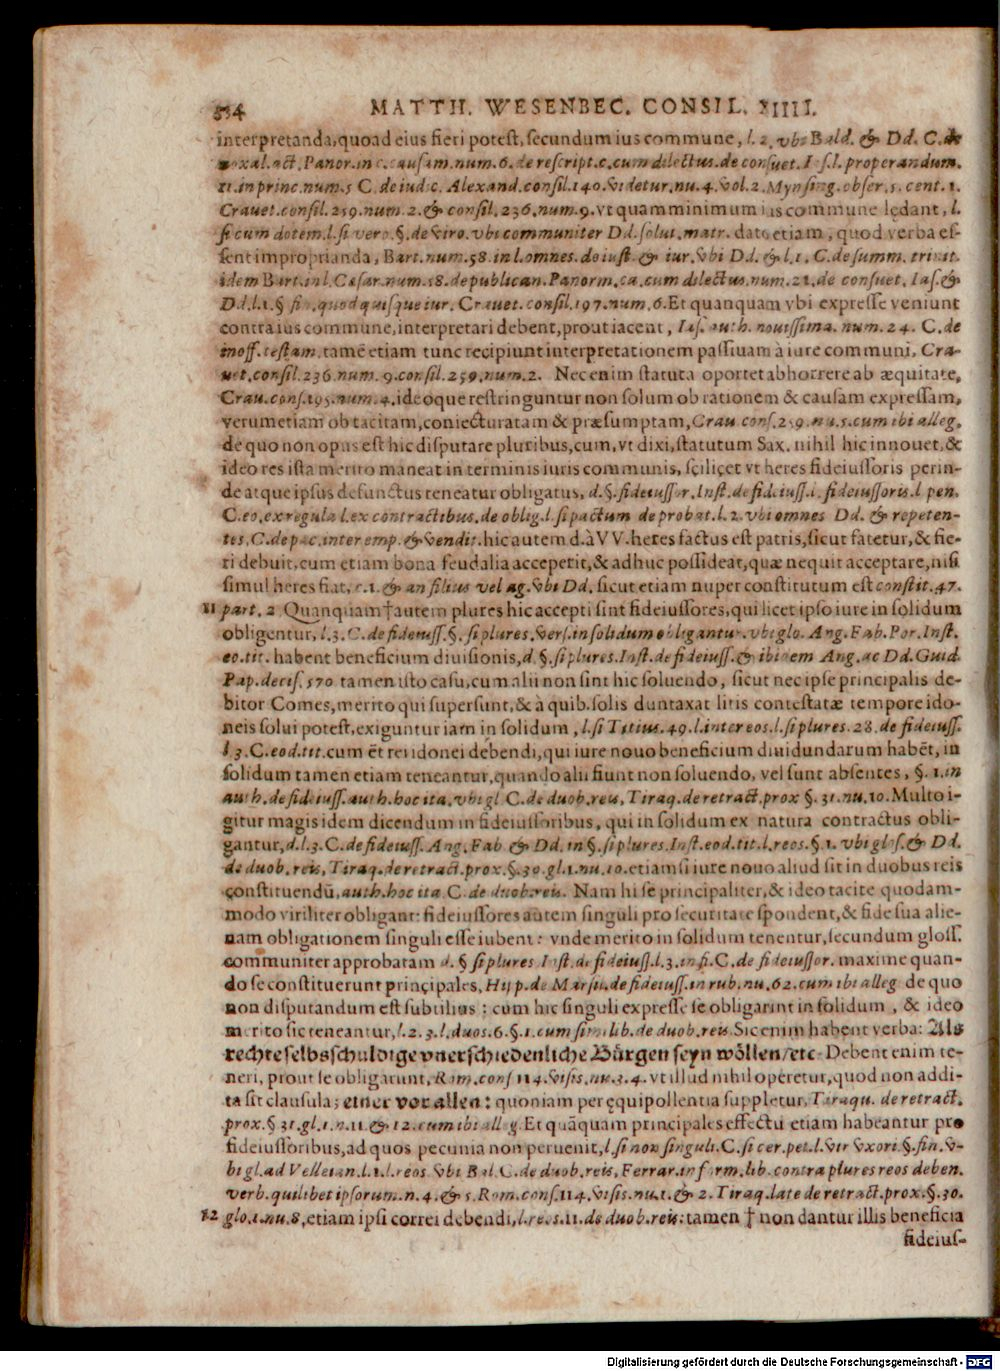 534 MATTH. WESENBEC. CONSIL. XIIII.
interpretanda, quoad eius fieri potest, secundum ius commune, l. 2. vbi Bald. & Dd. C. de
noxal. act. Panor. in c. causam. num. 6. de rescript. c. cum dilectus. de consuet. Ias. l. properandum.
11. in princ. num. 5 C. de iudic. Alexand. consil. 140. videtur. nu. 4. vol. 2. Mynsing. obser. 5. cent. 1.
Crauet. consil. 259. num. 2. & consil. 236. num. 9. vt quam minimum ius commune lędant, l.
si cum dotem. l. si vero. §. de viro. vbi communiter Dd. solut. matr. dato etiam, quod verba es-
sent improprianda, Bart. num. 58. in l. omnes. de iust. & iur. vbi Dd. & l. 1. C. de summ. trinit.
idem Bart. in l. Cæsar. num. 58. de publican. Panorm. ca. cum dilectus. num. 21. de consuet. Ias. &
Dd. l. 1. § fin. quod quisque iur. Crauet. consil. 197. num. 6. Et quanquam vbi expresse veniunt
contra ius commune, interpretari debent, prout iacent, Ias. auth. nouissima. num. 24. C. de
inoff. testam. tamē etiam tunc recipiunt interpretationem passiuam à iure communi. Cra-
uet. consil. 236. num. 9. consil. 259. num. 2. Nec enim statuta oportet abhorrere ab æquitate,
Crau. cons. 195. num. 4. ideoque restringuntur non solum ob rationem & causam expressam,
verumetiam ob tacitam, coniecturatam & præsumptam, Crau. cons. 259. nu. 5. cum ibi alleg.
de quo non opus est hic disputare pluribus, cum, vt dixi, statutum Sax. nihil hic innouet, &
ideo res ista merito maneat in terminis iuris communis, sçiliçet vt heres fideiussoris perin-
de atque ipsus defunctus teneatur obligatus, d. §. fideiussor. Inst. de fideiuss. i. fideiussoris. l pen.
C. eo. ex regula l. ex contractibus. de oblig. l. si pactum de probat. l. 2. vbi omnes Dd. & repeten-
tes. C. de pac. inter emp. & vendit. hic autem d. à VV. heres factus est patris, sicut fatetur, & fie-
ri debuit, cum etiam bona feudalia acceperit, & adhuc possideat, quæ nequit acceptare, nisi
simul heres fiat, c. 1. & an filius vel ag. vbi Dd, sicut etiam nuper constitutum est constit. 47.
11 part. 2 Quanquam † autem plures hic accepti sint fideiussores, qui licet ipso iure in solidum
obligentur, l. 3. C. de fideiuss. §. si plures. vers. in solidum obligantur. vbi glo. Ang. Fab. Por. Inst.
eo. tit. habent beneficium diuisionis, d. §. si plures. Inst. de fideiuss. & ibidem Ang. ac Dd. Guid.
Pap. decis. 570 tamen isto casu, cum alii non sint hic soluendo, sicut nec ipse principalis de-
bitor Comes, merito qui supersunt, & à quib. solis duntaxat litis contestatæ tempore ido-
neis solui potest, exiguntur iam in solidum, l. si Titius. 49. l. inter eos. l. si plures. 28. de fideiuss.
l 3. C. eod. tit. cum ēt rei idonei debendi, qui iure nouo beneficium diuidundarum habēt, in
solidum tamen etiam teneantur, quando alii fiunt non soluendo, vel sunt absentes, §. 1. in
auth. de fideiuss. auth. hoc ita. vbi gl C. de duob. reis, Tiraq. de retract. prox §. 31. nu. 10. Multo i-
gitur magis idem dicendum in fideiussoribus, qui in solidum ex natura contractus obli-
gantur, d. l. 3. C. de fideiuss. Ang. Fab & Dd. in §. si plures. Inst. eod. tit. l. reos. §. 1. vbi glos. & Dd.
de duob. reis, Tiraq. de retract. prox. §. 30. gl. 1. nu. 10. etiamsi iure nouo aliud sit in duobus reis
çonstituendū, auth. hoc ita C. de duob. reis. Nam hi se principaliter, & ideo tacite quodam-
modo viriliter obligant: fideiussores autem singuli pro securitate spondent, & fide sua alie-
nam obligationem singuli esse iubent: vnde merito in solidum tenentur, secundum gloss.
communiter approbatam d. § si plures. Inst. de fideiuss. l. 3. in fi. C. de fideiussor. maxime quan-
do se constituerunt prinçipales, Hip. de Marsil. de fideiuss. in rub. nu. 62. cum ibi alleg. de quo
non disputandum est subtilius: cum hic singuli expresse se obligarint in solidum, & ideo
merito sic teneantur, l. 2. 3. l. duos. 6. §. 1. cum simi lib. de duob. reis. Sic enim habent verba: Als
rechte selbsschuldige vnerschiedenliche Bürgen seyn wöllen / etc. Debent enim te-
neri, prout se obligarunt, Rom. cons 114. visis. nu. 3. 4. vt illud nihil operetur, quod non addi-
ta sit clausula; einer vor allen: quoniam per ęquipollentia suppletur, Tiraqu. de retract.
prox. § 31. gl. 1. n. 11. & 12. cum ibi alleg. Et quāquam principales effectu etiam habeantur pro
fideiussoribus, ad quos pecunia non peruenit, l. si non singuli. C. si cer. pet. l. vir vxori. §. fin. v-
bi gl. ad Velleian. l. 1. l. reos. vbi Bal. C. de duob. reis, Ferrar. in form. lib. contra plures reos deben.
verb. quilibet ipsorum. n. 4. & 5. Rom. cons. 114. visis. nu. 1. & 2. Tiraq. late de retract. prox. §. 30.
12 glo. 1. nu. 8, etiam ipsi correi debendi, l. reos. 11. de duob. reis: tamen † non dantur illis beneficia
fideius-
Digitalisierung gefördert durch die Deutsche Forschungsgemeinschaft - DFG